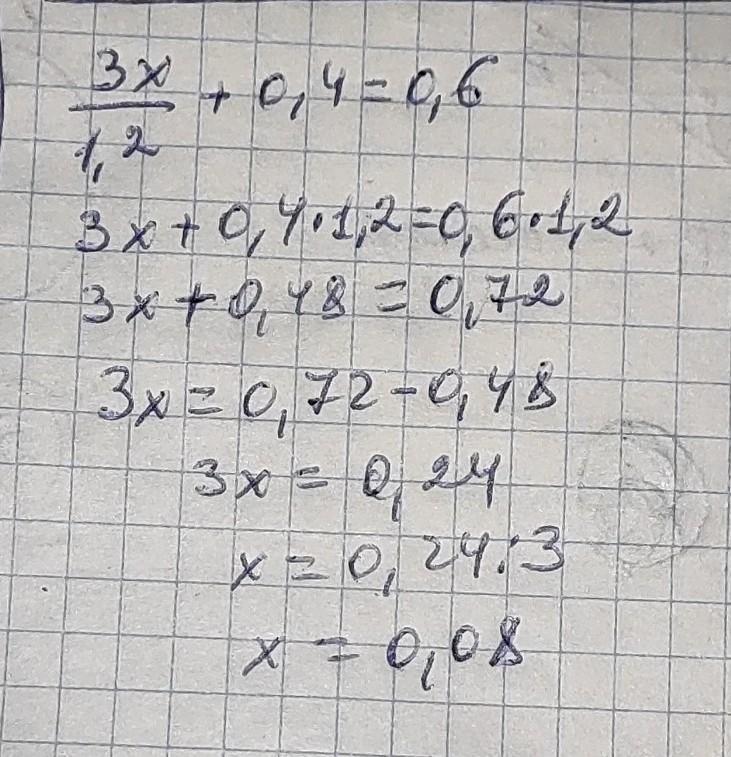 3x/1,2 + 0,4 = 0,6
3x + 0,4 · 1,2 = 0,6 · 1,2
3x + 0,48 = 0,72
3x = 0,72 - 0,48
3x = 0,24
x = 0,24 : 3
x = 0,08